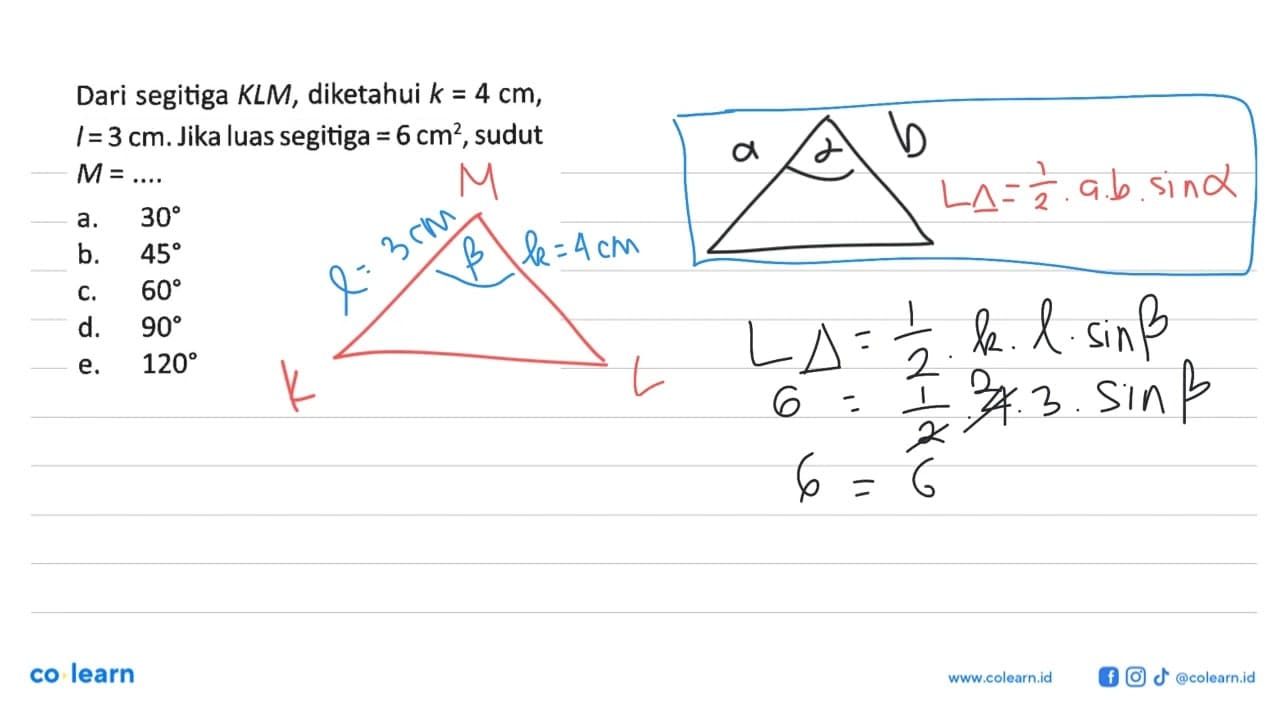 Dari segitiga KLM, diketahui k = 4 cm,
l = 3 cm. Jika luas segitiga = 6 cm², sudut
M = ....
a. 30°
b. 45°
c. 60°
d. 90°
e. 120°
M
l = 3 cm
β
k = 4 cm
K
L
a
α
b
L∆ = 1/2 . a.b. sin α
L∆ = 1/2 . k. l. sin β
6 = 1/2 . 4 2 . 3 . sin β
6 = 6
co learn
www.colearn.id
@colearn.id